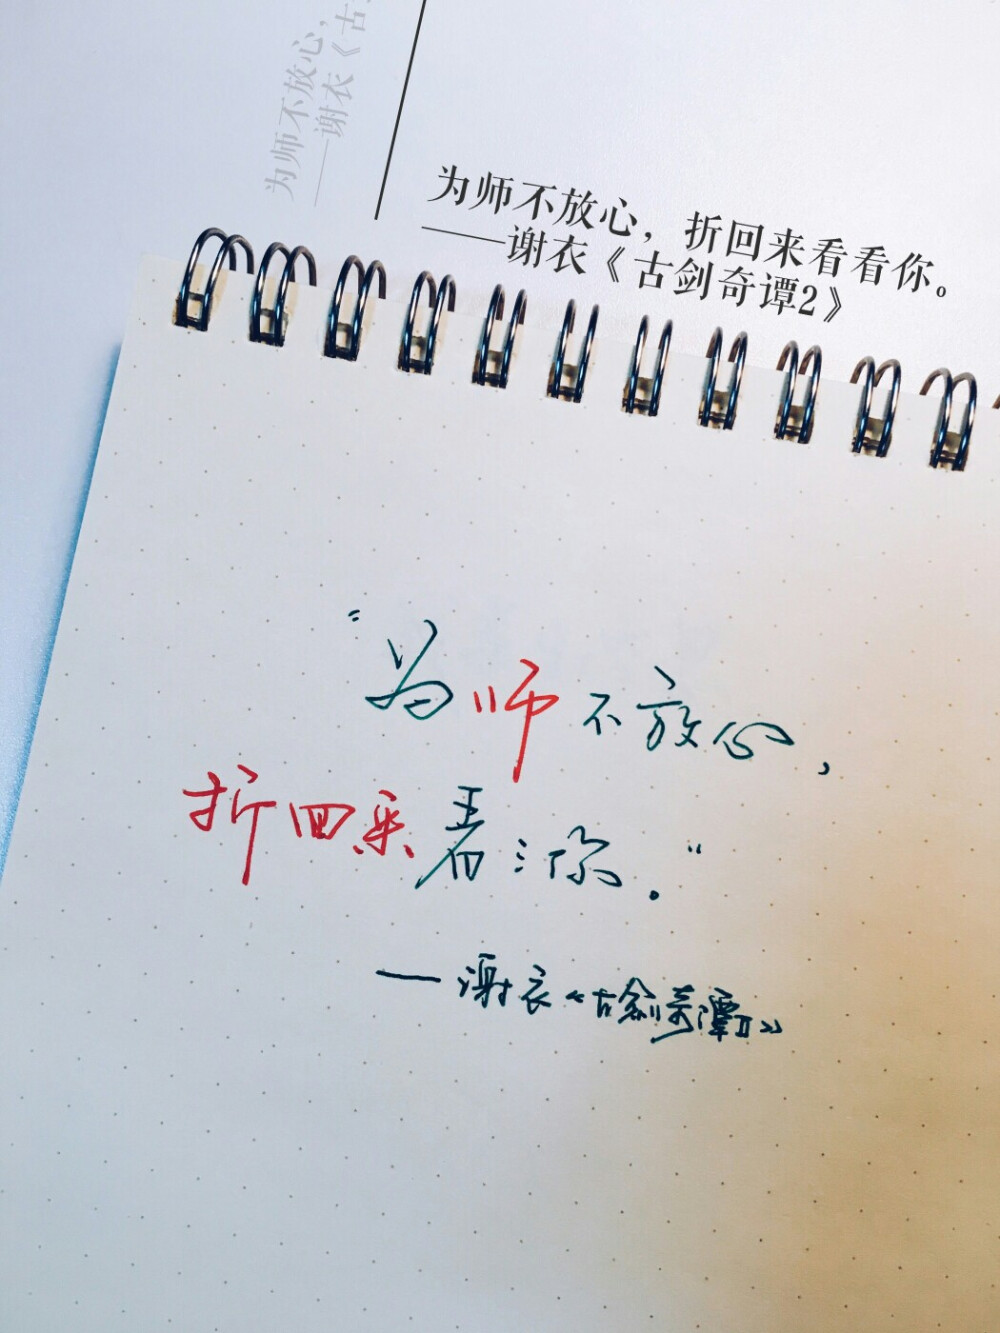 为师不放心,
——谢衣《古
为师不放心，折回来看看你。
——谢衣《古剑奇谭2》
"为师不放心,
折回来看:你."
—谢衣《古剑奇谭II》